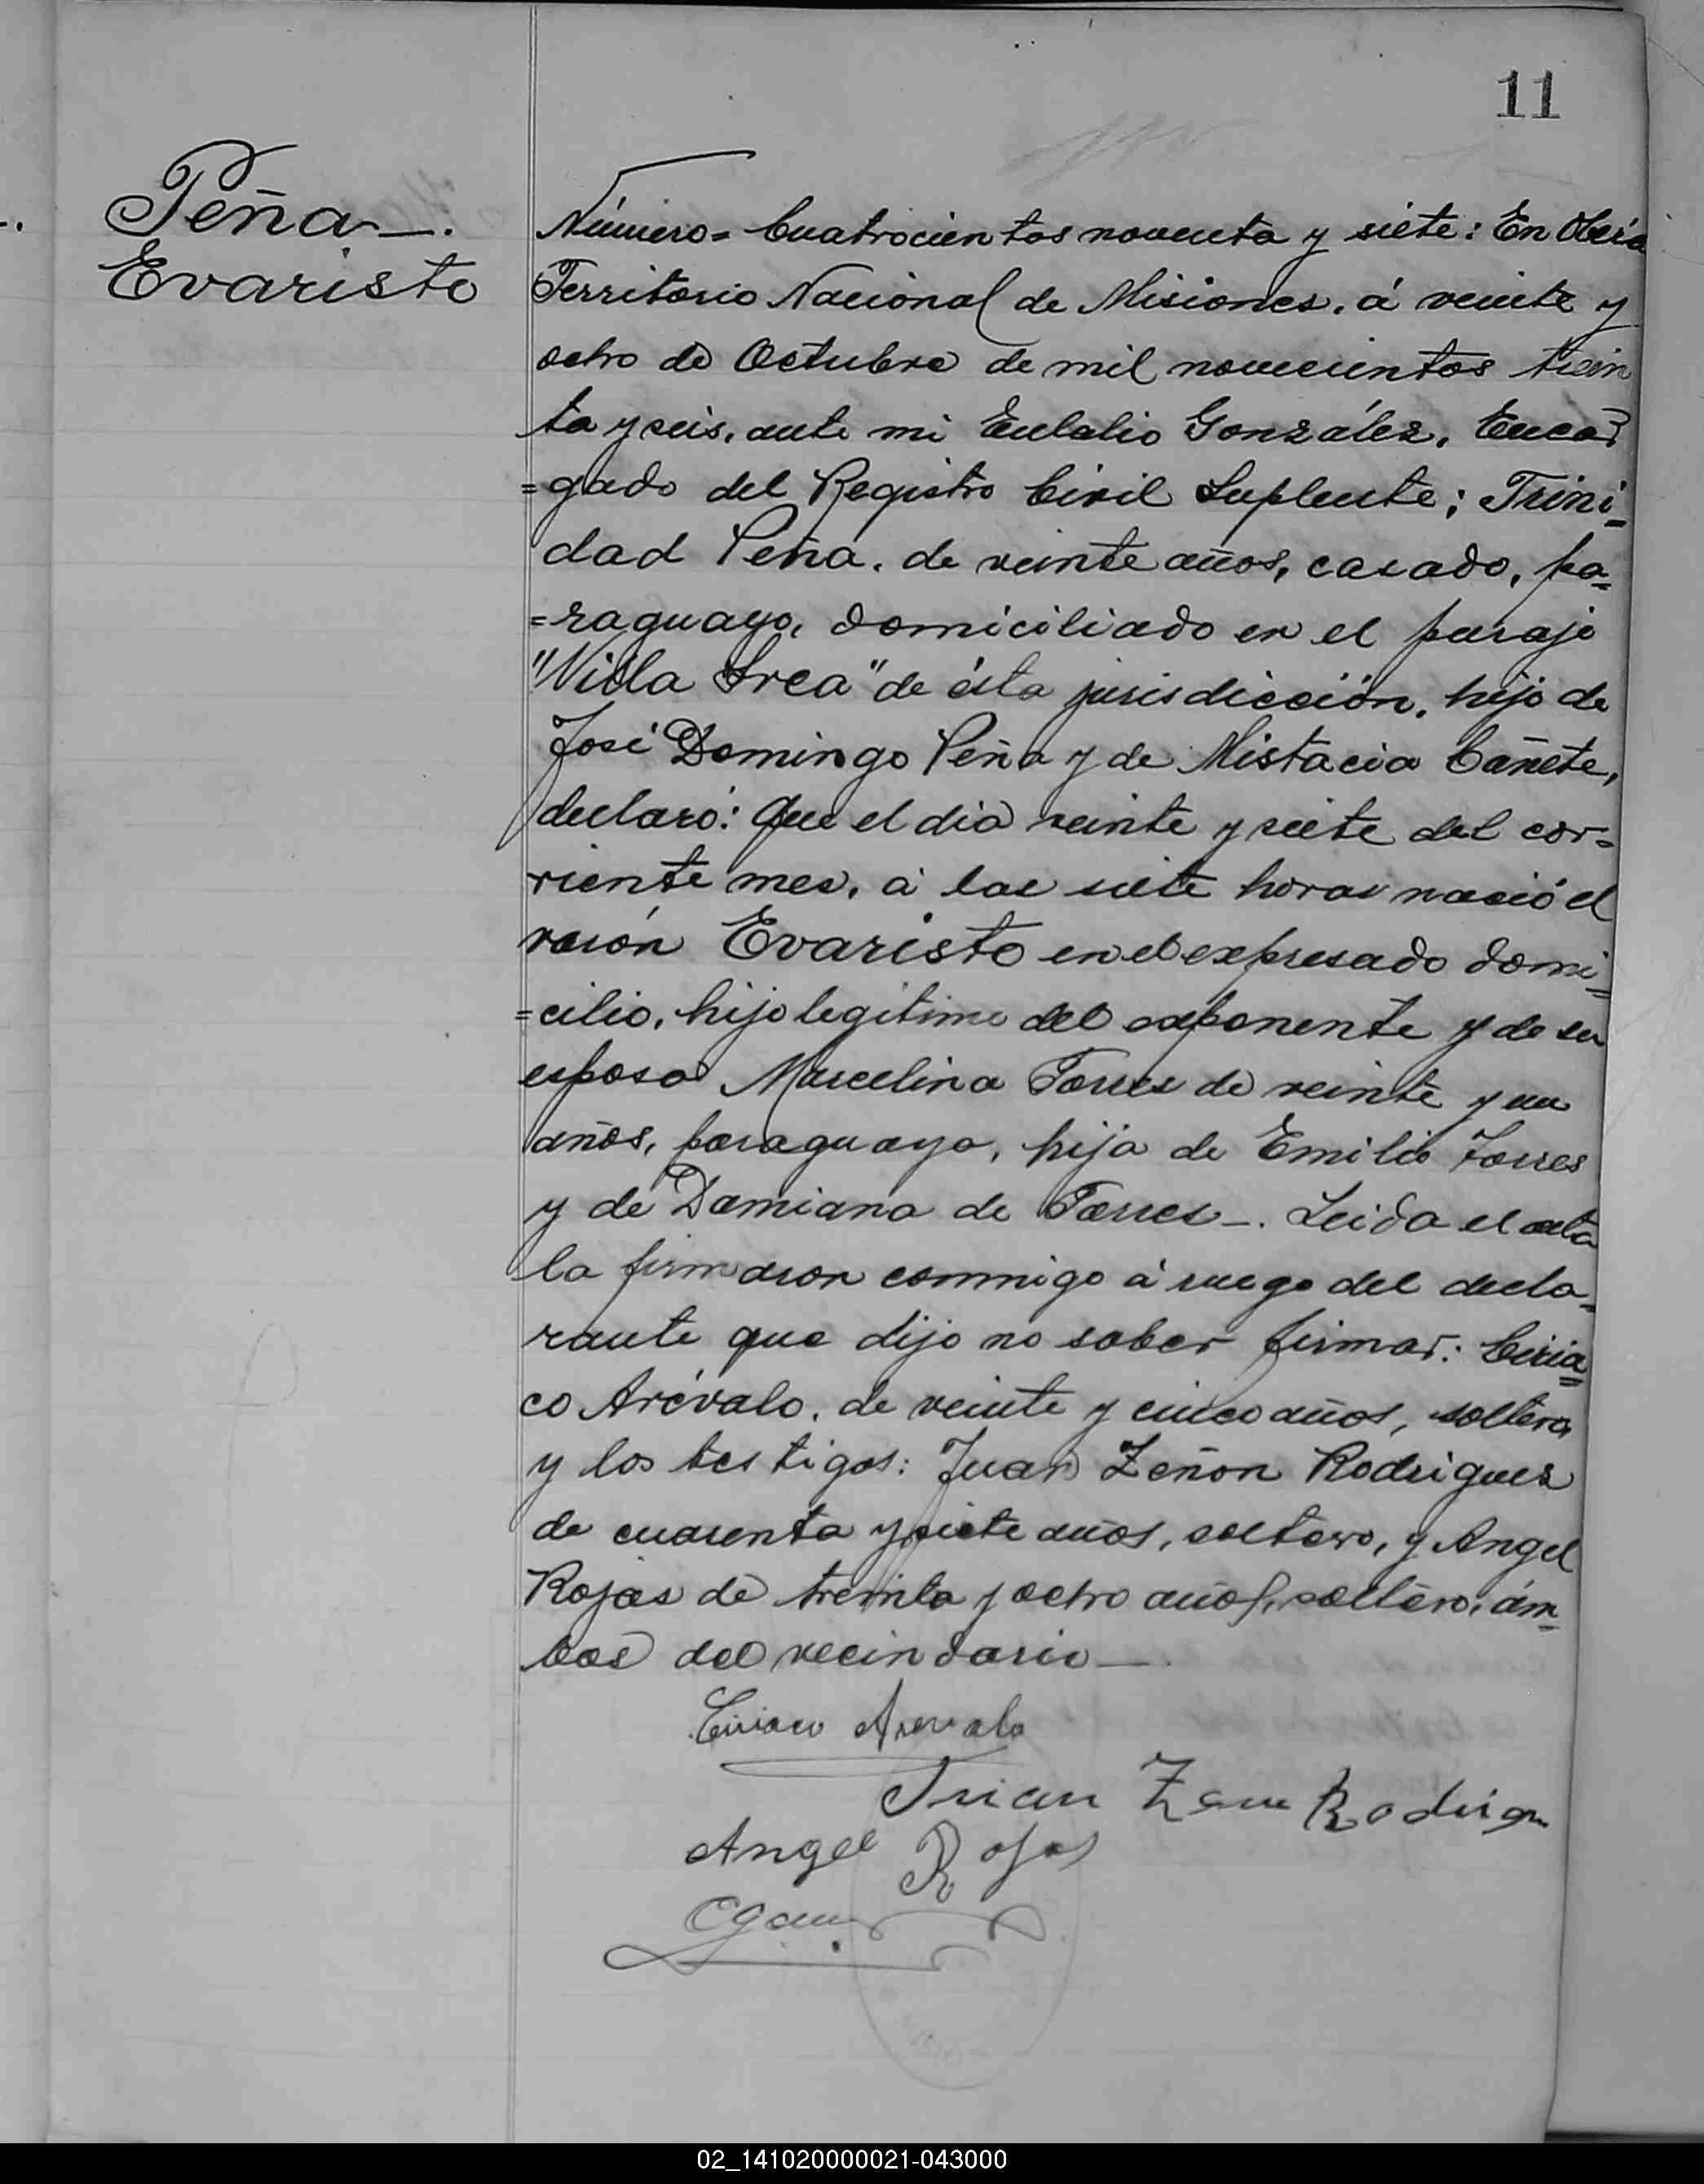 11
Peña—.
Evaristo
Número= Cuatrocientos noventa y siete: En Oberá
Territorio Nacional de Misiones, á veinte y
ocho de Octubre de mil novecientos trein
ta y seis, ante mi Eulalio González, Encar
=gado del Registro Civil Suplente; Trini=
dad Peña, de veinte años, casado, pa=
=raguayo, domiciliado en el paraje
"Villa Srea" de ésta jurisdicción, hijo de
José Domingo Peña y de Mistacia Cañete,
declaró: Que el dia veinte y siete del cor=
riente mes, á las siete horas nació el
varón Evaristo en el expresado domi=
=cilio, hijo legitimo del exponente y de su
esposa Marcelina Torres de veinte y un
años, paraguaya, hija de Emilio Torres
y de Damiana de Torres—. Leida el acta
la firmaron conmigo á ruego del decla=
rante que dijo no saber firmar: Ciria=
co Arévalo, de veinte y cinco años, soltero,
y los testigos: Juan Zeñon Rodriguez
de cuarenta y siete años, soltero, y Angel
Rojas de treinta y ocho años, soltero, ám=
bos del vecindario—.
Ciriaco Arevalo
Juan Rodrigu
Angel Rojas
02_141020000021-043000